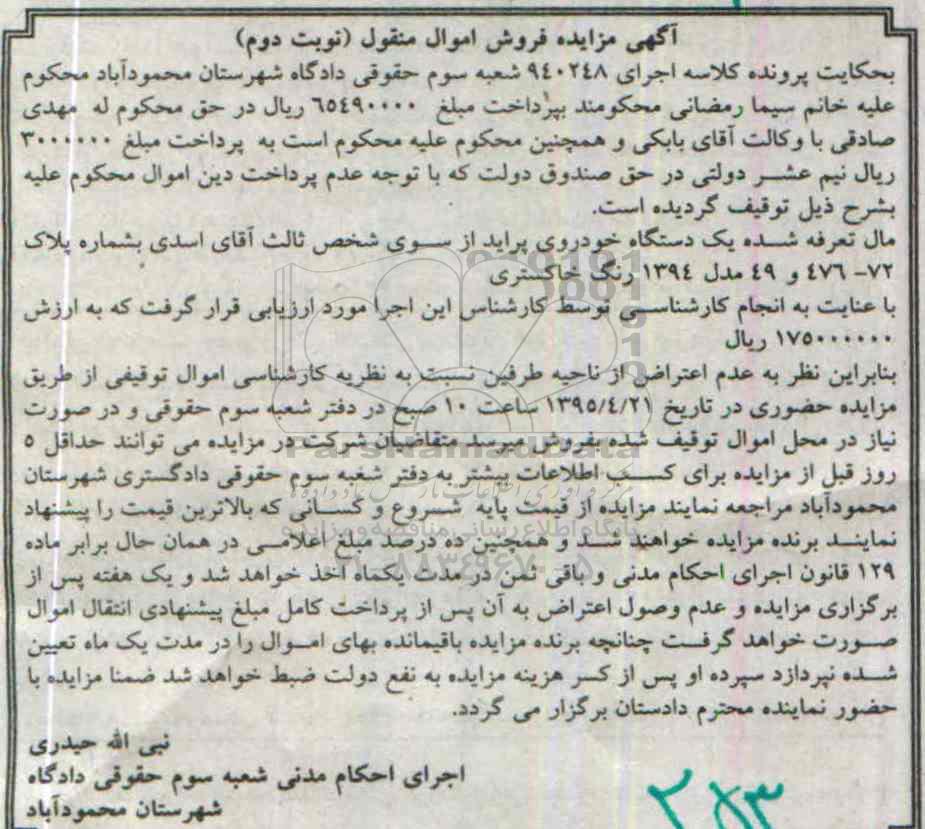 آگهی مزایده فروش اموال منقول (نوبت دوم)
بحکایت پرونده کلاسه اجرای ۹٤۰۲٤۸ شعبه سوم حقوقی دادگاه شهرستان محمودآباد محکوم
علیه خانم سیما رمضانی محکومند بپرداخت مبلغ ٦٥٤۹۰۰۰۰ ریال در حق محکوم له مهدی
صادقی با وکالت آقای بابکی و همچنین محکوم علیه محکوم است به پرداخت مبلغ ۳۰۰۰۰۰۰
ریال نیم عشر دولتی در حق صندوق دولت که با توجه عدم پرداخت دین اموال محکوم علیه
بشرح ذیل توقیف گردیده است.
مال تعرفه شده یک دستگاه خودروی پراید از سوی شخص ثالث آقای اسدی بشماره پلاک
۷۲- ٤۷٦ و ٤۹ مدل ۱۳۹٤ رنگ خاکستری
با عنایت به انجام کارشناسی توسط کارشناس این اجرا مورد ارزیابی قرار گرفت که به ارزش
۱۷٥۰۰۰۰۰۰ ریال
بنابراین نظر به عدم اعتراض از ناحیه طرفین نسبت به نظریه کارشناسی اموال توقیفی از طریق
مزایده حضوری در تاریخ ۱۳۹٥/٤/۲۱ ساعت ۱۰ صبح در دفتر شعبه سوم حقوقی و در صورت
نیاز در محل اموال توقیف شده بفروش میرسد متقاضیان شرکت در مزایده می توانند حداقل ٥
روز قبل از مزایده برای کسب اطلاعات بیشتر به دفتر شعبه سوم حقوقی دادگستری شهرستان
محمودآباد مراجعه نمایند مزایده از قیمت پایه شروع و کسانی که بالاترین قیمت را پیشنهاد
نمایند برنده مزایده خواهند شد و همچنین ده درصد مبلغ اعلامی در همان حال برابر ماده
۱۲۹ قانون اجرای احکام مدنی و باقی ثمن در مدت یکماه اخذ خواهد شد و یک هفته پس از
برگزاری مزایده و عدم وصول اعتراض به آن پس از پرداخت کامل مبلغ پیشنهادی انتقال اموال
صورت خواهد گرفت چنانچه برنده مزایده باقیمانده بهای اموال را در مدت یک ماه تعیین
شده نپردازد سپرده او پس از کسر هزینه مزایده به نفع دولت ضبط خواهد شد ضمنا مزایده با
حضور نماینده محترم دادستان برگزار می گردد.
نبی الله حیدری
اجرای احکام مدنی شعبه سوم حقوقی دادگاه
شهرستان محمودآباد
ParsNamadData
پایگاه اطلاع رسانی مناقصه و مزایده